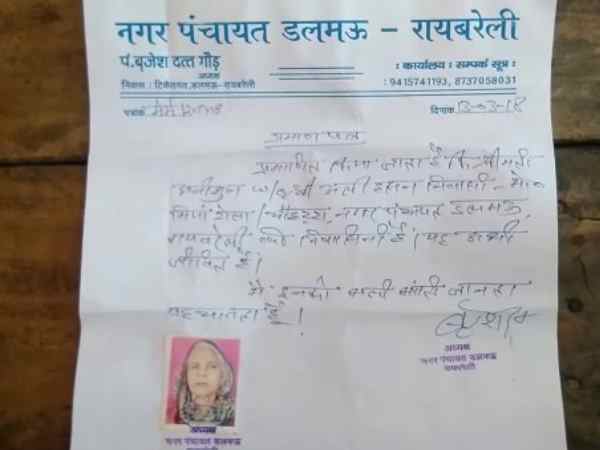 नगर पंचायत डलमऊ – रायबरेली
पं.बृजेश दत्त गौड़
अध्यक्ष
: कार्यालय : सम्पर्क सूत्र :
निवास : टिकैतगंज, डलमऊ-रायबरेली
: 9415741193, 8737058031
पत्रांक
दिनांक 13-03-18
प्रमाण पत्र
प्रमाणित किया जाता है कि श्रीमती
w/o श्री अली हसन निवासी- मो०
मियां टोला नगर पंचायत डलमऊ,
रायबरेली की निवासिनी हैं। यह अभी
जीवित हैं।
मै इनको भली भांती जानता
पहचानता हूँ।
अध्यक्ष
नगर पंचायत डलमऊ
रायबरेली
अध्यक्ष
नगर पंचायत डलमऊ
रायबरेली